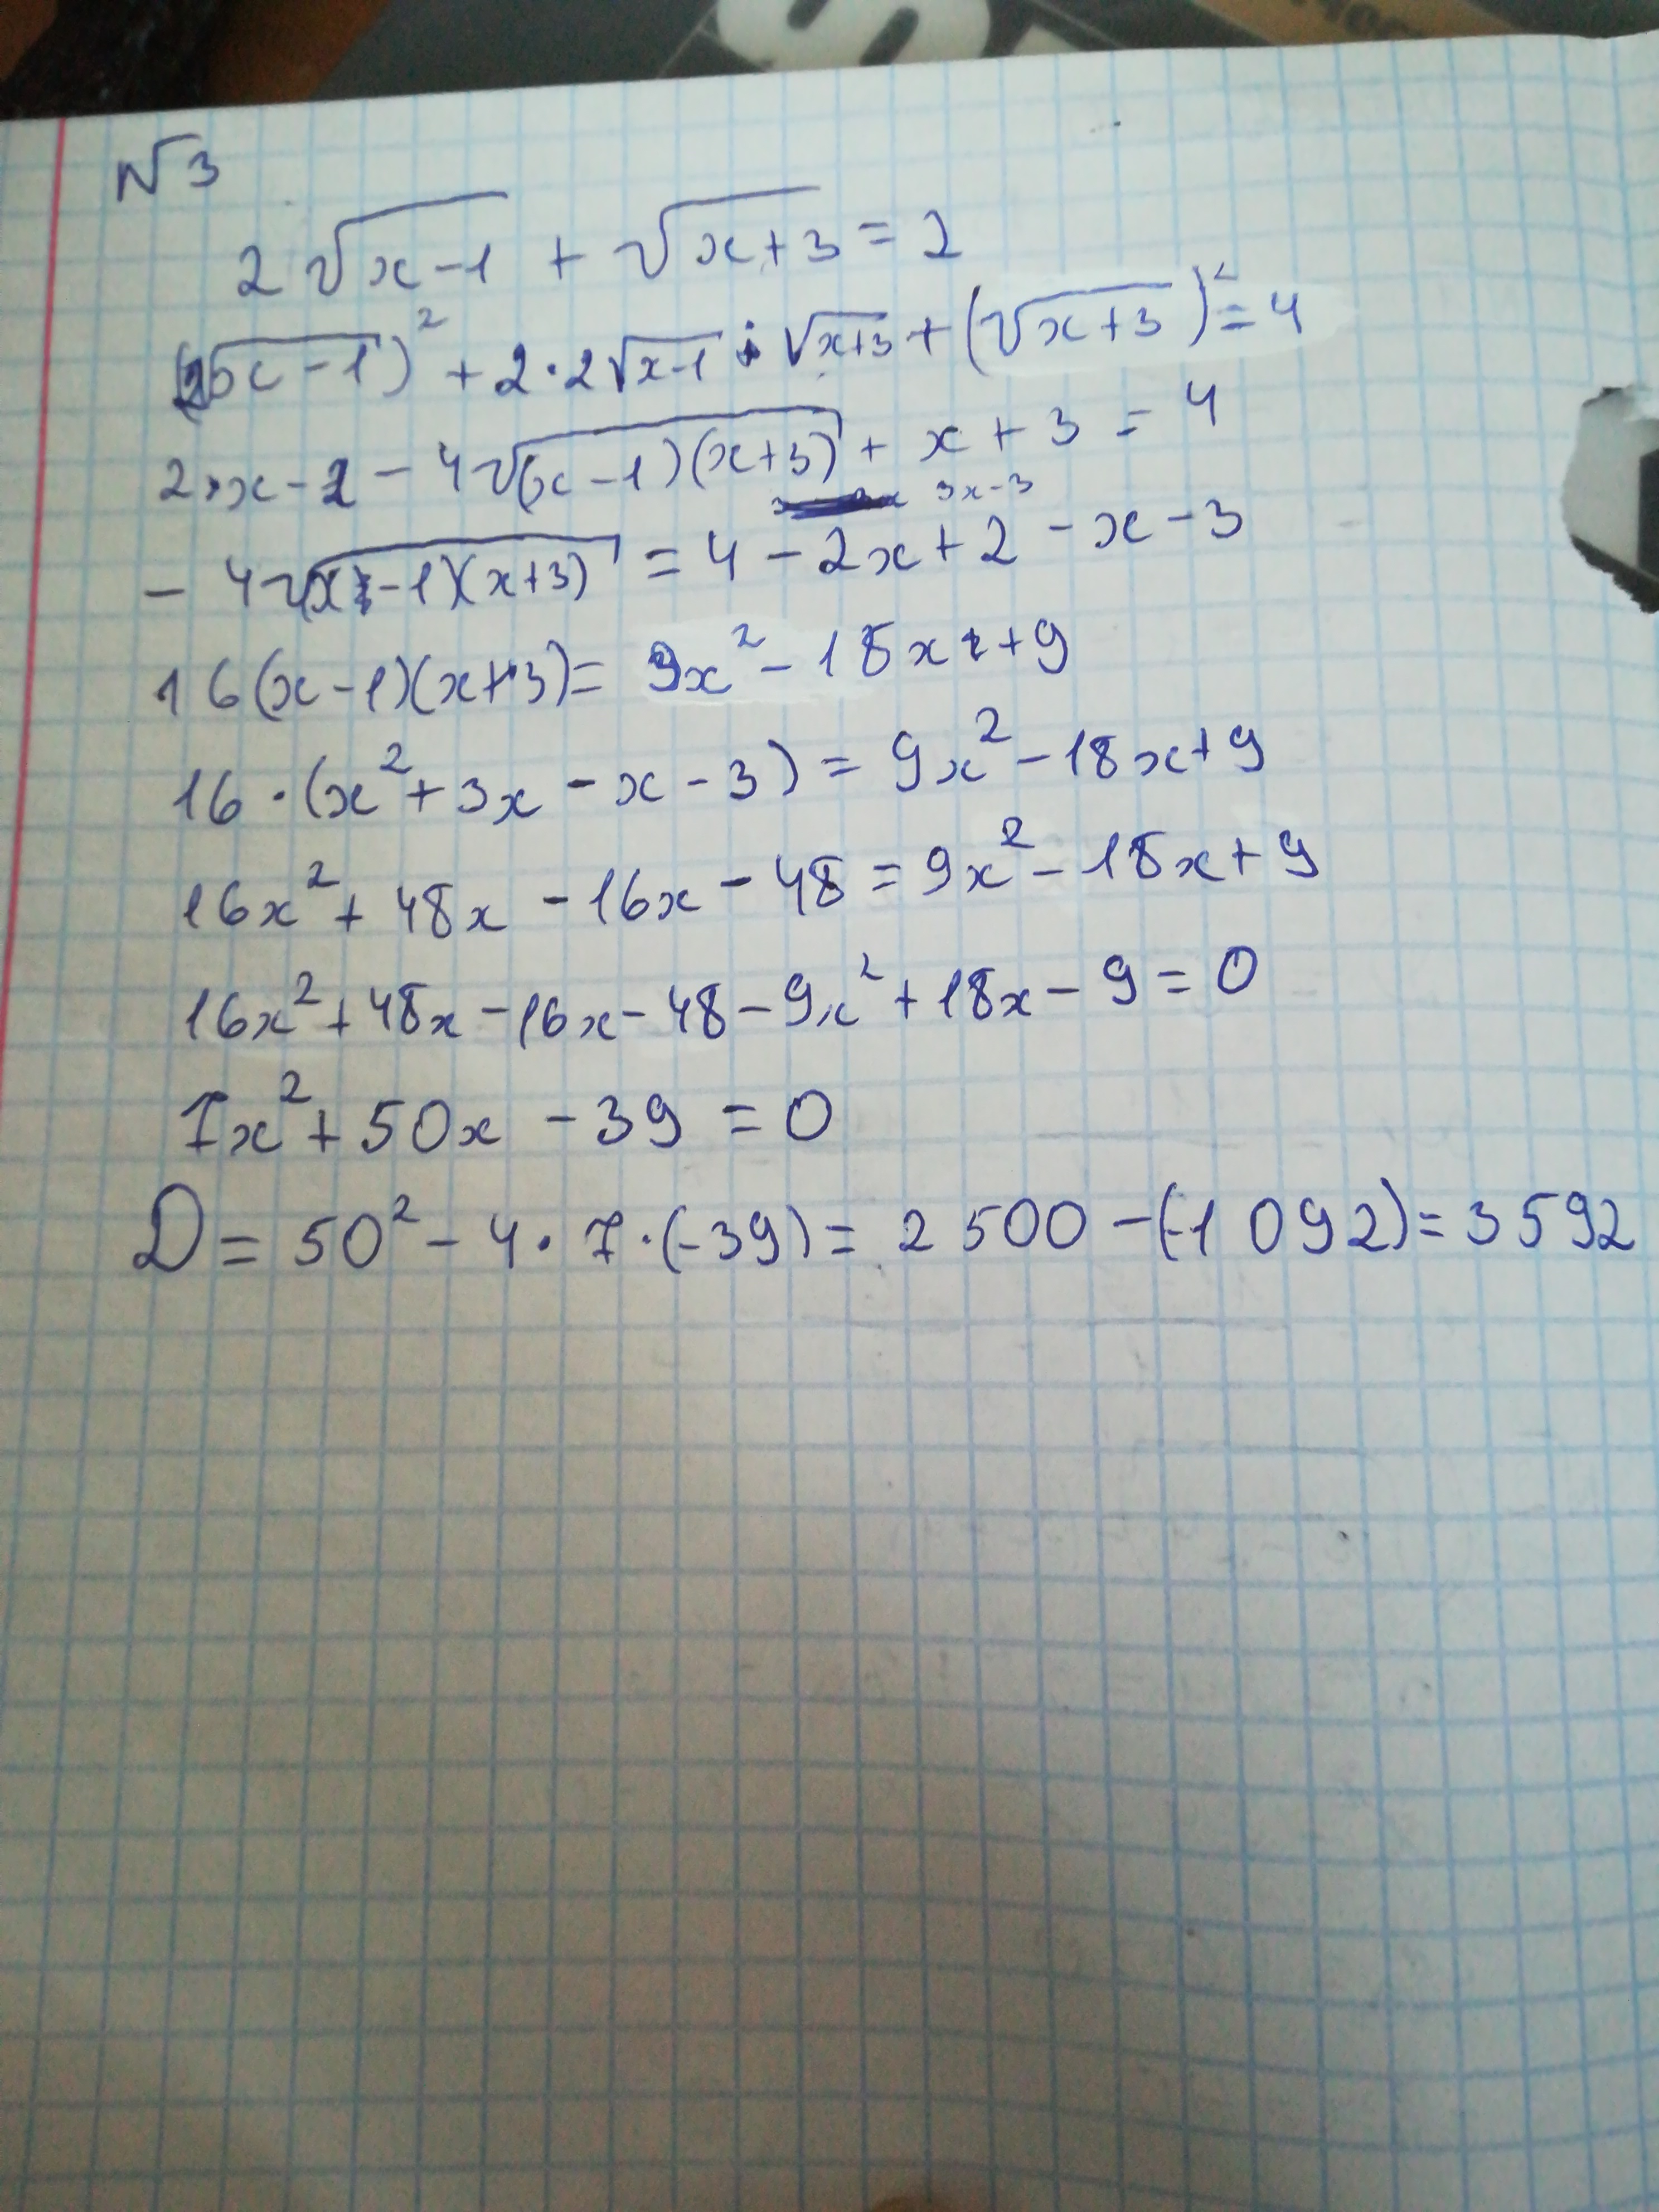 №3
2√(x-1) + √(x+3) = 2
(2√(x-1))² + 2·2√(x-1) · √(x+3) + (√(x+3))² = 4
2·x-2 - 4√((x-1)(x+3)) + x + 3 = 4
3x-3
- 4√((x-1)(x+3)) = 4 - 2x + 2 - x - 3
16(x-1)(x+3) = 9x² - 18x + 9
16·(x² + 3x - x - 3) = 9x² - 18x + 9
16x² + 48x - 16x - 48 = 9x² - 18x + 9
16x² + 48x - 16x - 48 - 9x² + 18x - 9 = 0
7x² + 50x - 39 = 0
D = 50² - 4·7·(-39) = 2 500 - (-1 092) = 3592